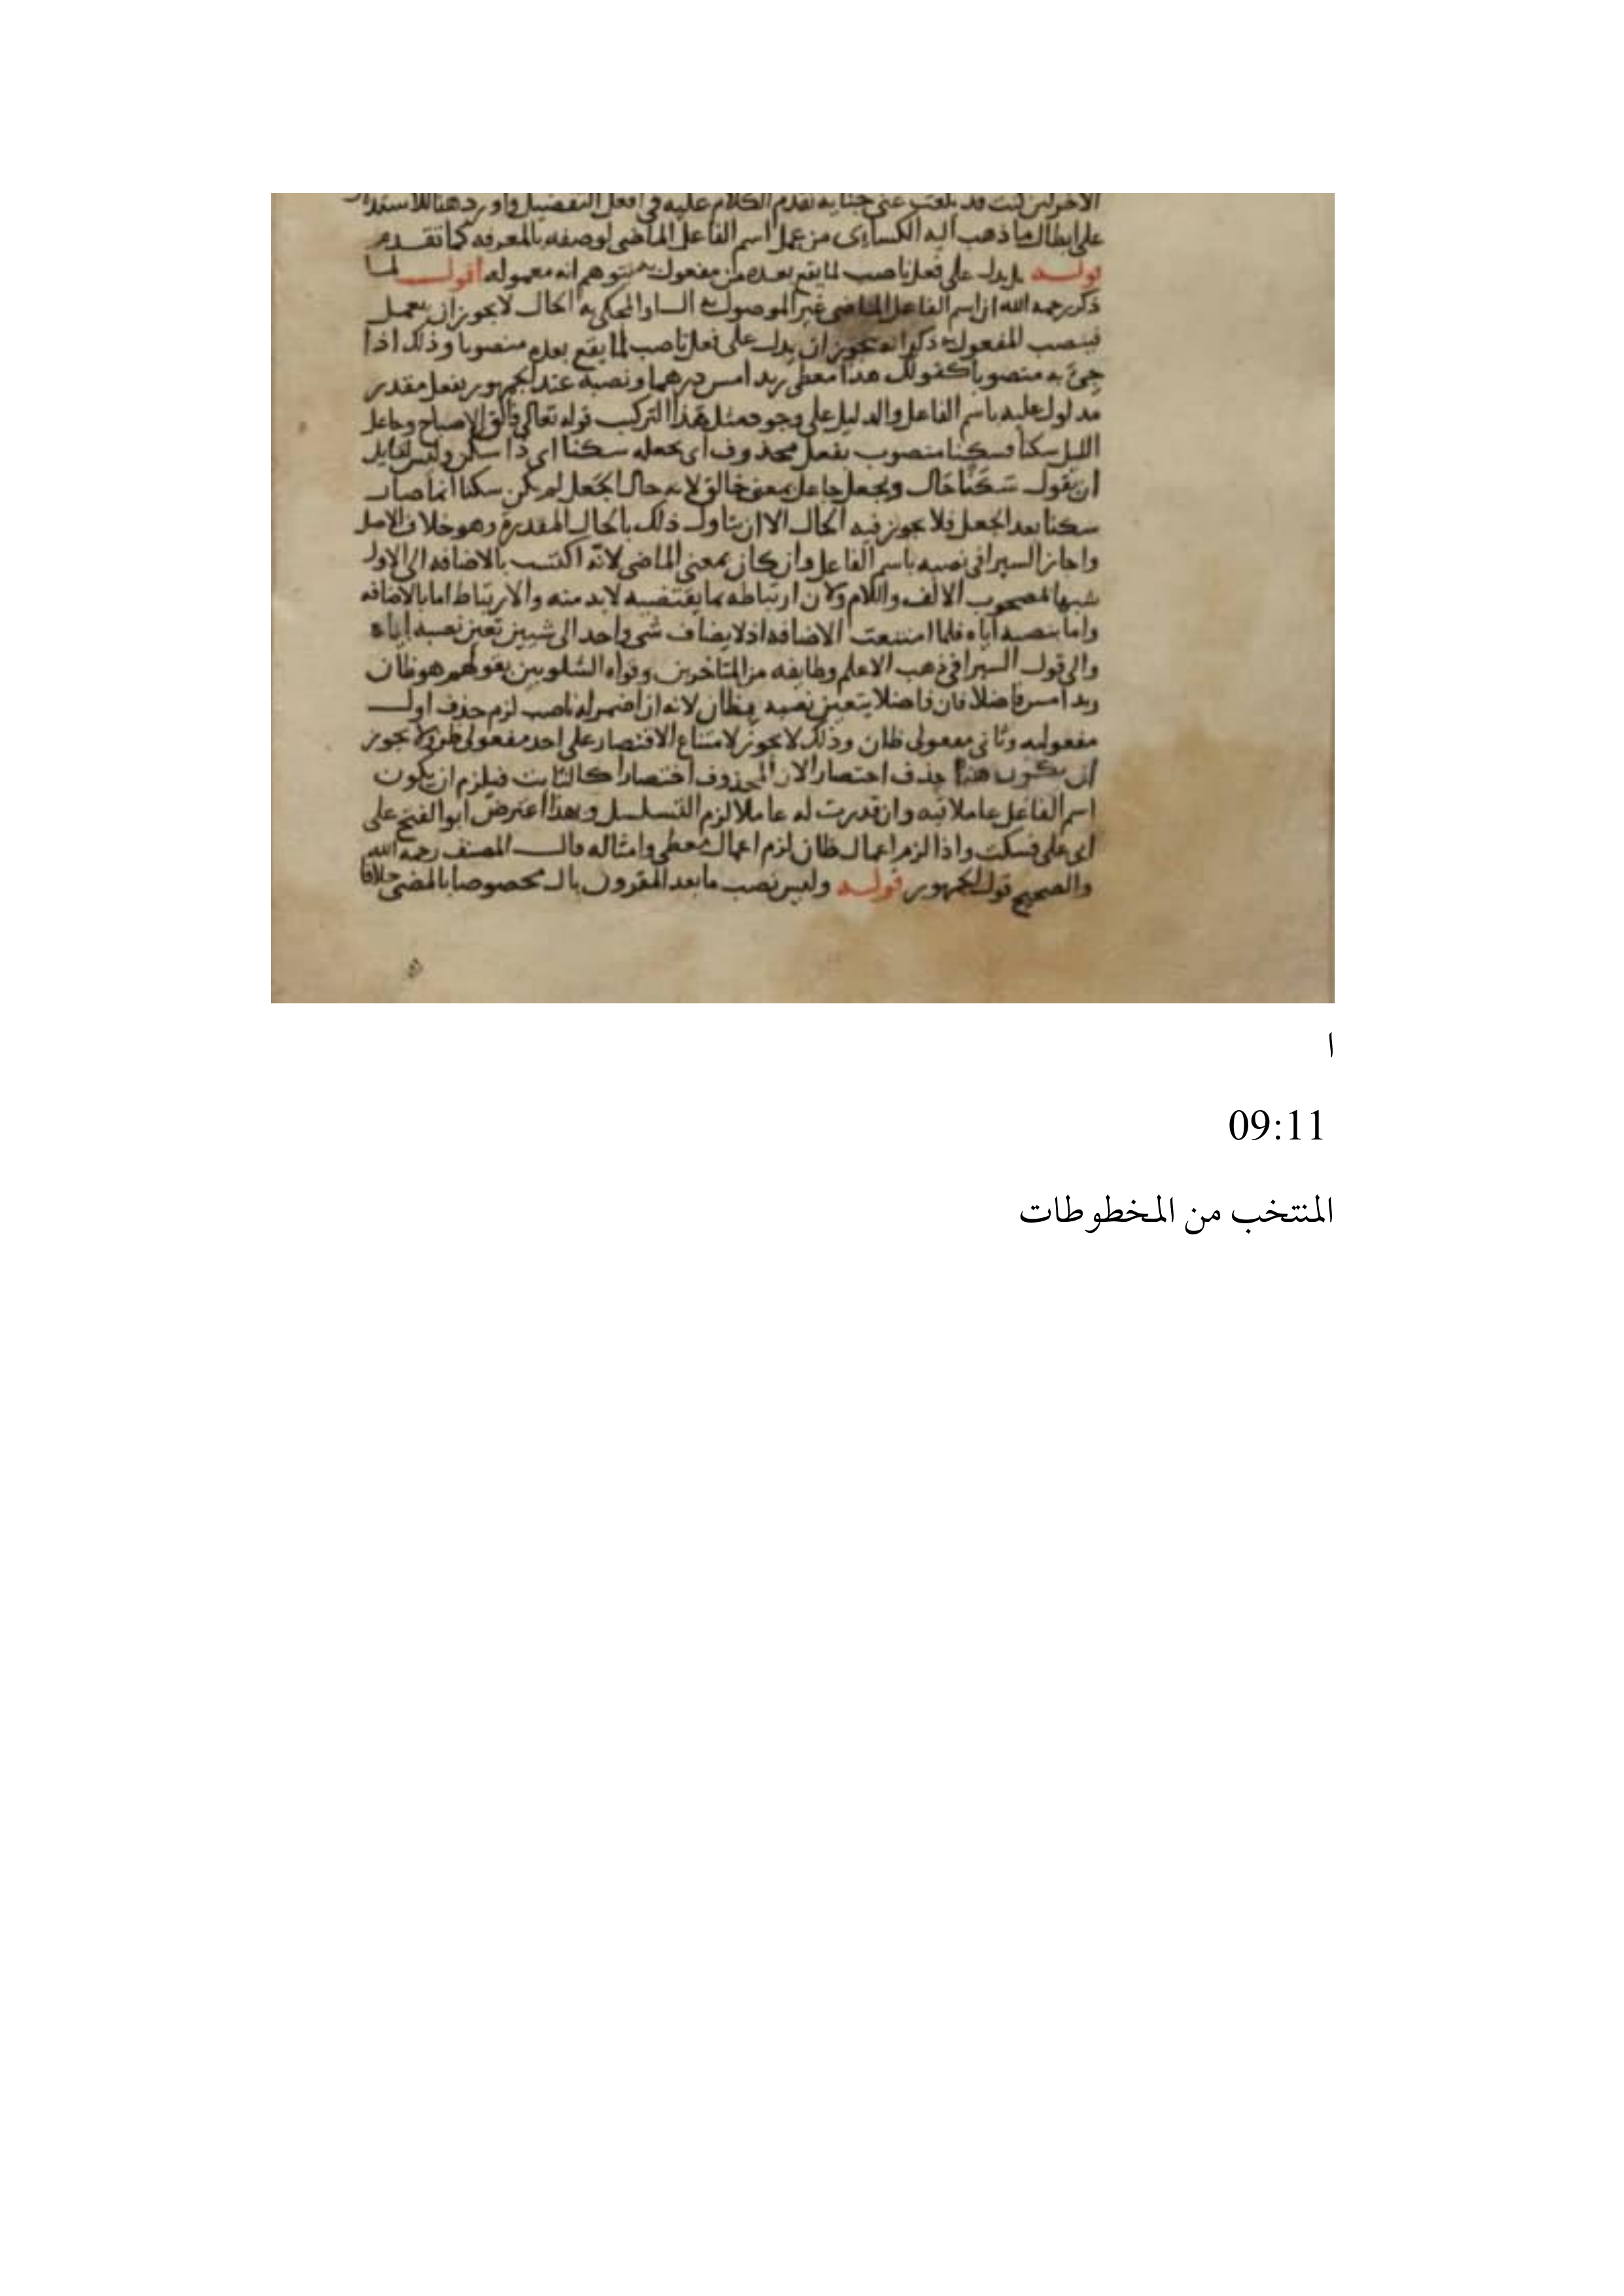 الاخر لئن كنت قد بلغت عني جنايه تقدم الكلام عليه في افعل التفضيل واورد هنا للاستدلال
على ابطال ما ذهب اليه الكسائى من عمل اسم الفاعل الماضى لوصفه بالمعرفه كما تقدم
قوله بل يدل على فعل ناصب لما يقع بعده من مفعول به يتوهم انه معموله اقول لما
ذكر رحمه الله ان اسم الفاعل الماضى غير الموصول به ال او المحكى به الحال لا يجوز ان يعمل
فينصب المفعول به ذكر انه يجوز ان يدل على فعل ناصب لما يقع بعده منصوبا وذلك اذا
جئ به منصوبا كقولك هذا معطى زيد امس درهما ونصبه عند الجمهور بفعل مقدر
مدلول عليه باسم الفاعل والدليل على وجود مثل هذا التركيب قوله تعالى فالق الاصباح وجاعل
الليل سكنا فسكنا منصوب بفعل محذوف اى يجعله سكنا اى ذا سكن وليس لقايل
ان يقول سَكَنًا حَال ويجعل جاعل بمعنى خالق لانه حال الجعل لم يكن سكنا انما صار
سكنا بعد الجعل فلا يجوز فيه الحال الا ان يتاول ذلك بالحال المقدرة وهو خلاف الاصل
واجاز السيرافى نصبه باسم الفاعل وان كان بمعنى الماضى لانه اكتسب بالاضافه الى الاول
شبها بمصحوب الالف واللام ولان ارتباطه بما يقتضيه لابد منه والارتباط اما بالاضافه
واما بنصبه اياه فلما امتنعت الاضافه اذ لا يضاف شى واحد الى شيين تعين نصبه اياه
والى قول السيرافى ذهب الاعلم وطايفه من المتاخرين وقواه الشلوبين بقولهم هو ظان
زيد امس فاضلا فان فاضلا يتعين نصبه بظان لانه ان اضمر له ناصب لزم حذف اول
مفعوليه وثانى مفعولى ظان وذلك لا يجوز لامتناع الاقتصار على احد مفعولى ظن ولا يجوز
ان يكون هذا حذف اختصار لان المحذوف اختصارا كالثابت فيلزم ان يكون
اسم الفاعل عاملا فيه وان قدرت له عاملا لزم التسلسل وبهذا اعترض ابو الفتح على
ابى على فسكت واذا لزم اعمال ظان لزم اعمال معطى وامثاله قال المصنف رحمه الله
والصحيح قول الجمهور قوله وليس نصب ما بعد المقرون بال مخصوصا بالمضى خلافا
ا
09:11
المنتخب من المخطوطات